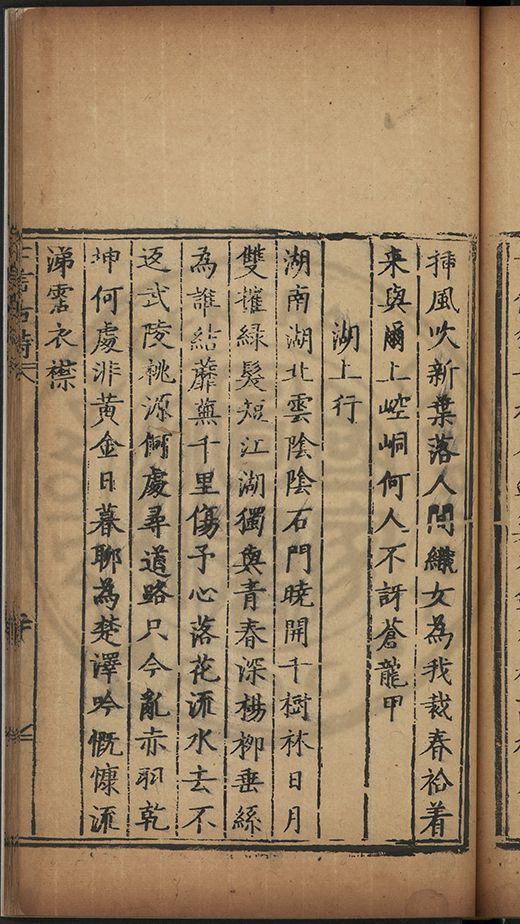 揷風吹新葉落人間織女為我裁春袷着
来與爾上崆峒何人不訝蒼龍甲
湖上行
湖南湖北雲陰陰石門曉開千樹林日月
雙摧綠髮短江湖獨與青春深楊柳垂絲
為誰結蘼蕪千里傷予心落花流水去不
返武陵桃源何處尋道路只今亂赤羽乾
坤何處非黃金日暮聊為楚澤吟慨慷流
涕霑衣襟